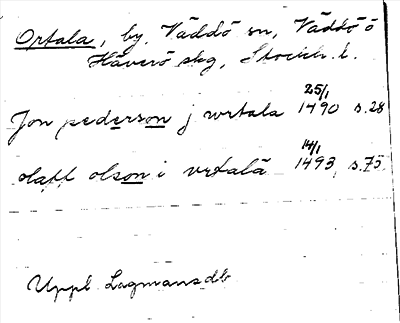 Ortala, by. Väddö sn, Väddö ö
Häverö skg, Stockh. l.
Jon pederson j wrtala 25/1 1490 s. 28
olaff olson i vrtala 14/1 1493, s. 75.
Uppl. Lagmansdb